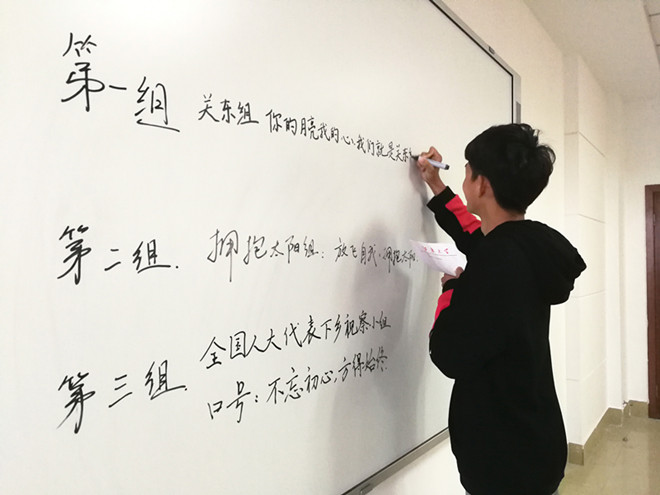 第一组 关东组 你的月亮我的心、我们就是关东
第二组. 拥抱太阳组: 放飞自我、拥抱太阳.
第三组. 全国人大代表下乡视察小组
口号: 不忘初心,方得始终